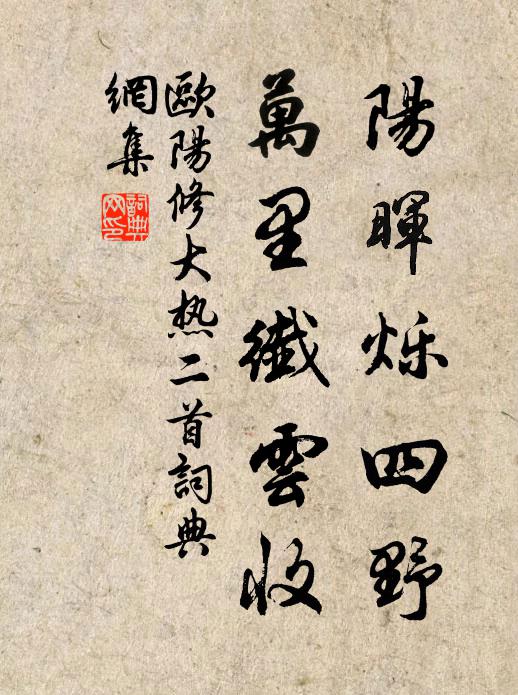 陽暉烁四野
萬里纖雲收
歐陽修大热二首詞典
網集
詞典
网印